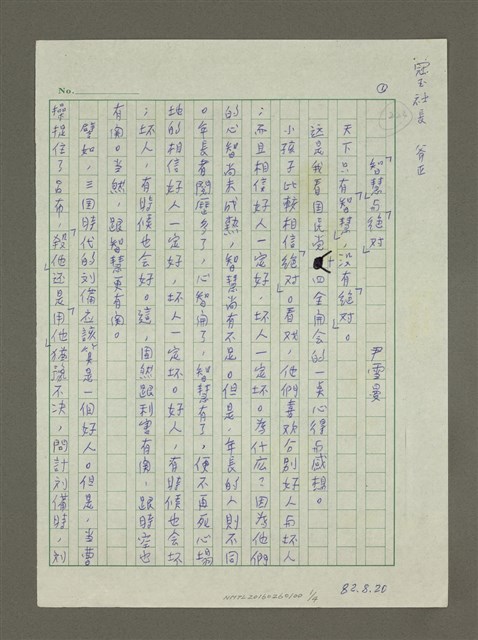 冠玉社長 斧正
No.
①
「智慧与絶对」
尹雪曼
天下只有「智慧」,没有「絶对」。
这是我看国民党十四全開会的一奌心得与感想。
小孩子比較相信「絶对」。看戏,他們喜欢分別好人与坏人
;而且相信好人一定好,坏人一定坏。為什広?因為他們
的心智尚未成熟,智慧尚有不足。但是,年長的人則不同
。年長者閱歷多了,心智開了,智慧有了,便不再死心塌
地的相信好人一定好,坏人一定坏。好人,有時候也会坏
;坏人,有時候也会好。這,固然跟利害有関,跟時空也
有関。当然,跟智慧更有関。
譬如,三国時代的刘備应該算是一個好人。但是,当曹
操捉住了呂布,「殺他还是用他」猶豫不决,問計刘備時,刘
NMTL20160260100 1/4
82.8.20